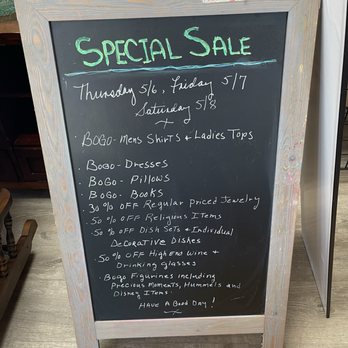 SPECIAL SALE
Thursday 5/6, Friday 5/7
Saturday 5/8
BOGO- Mens Shirts & Ladies Tops
BOGO- Dresses
BOGO- Pillows
BOGO- Books
30% OFF Regular Priced Jewelry
50% OFF Religious Items
50% OFF Dish Sets & Individual
Decorative Dishes
50% OFF High End Wine &
Drinking Glasses
BOGO Figurines including
Precious Moments, Hummels and
Disney Items.
HAVE A Good DAY!